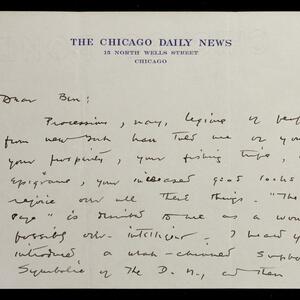 THE CHICAGO DAILY NEWS
15 NORTH WELLS STREET
CHICAGO
Dear Ben:
Processions, nay, legions of peop
from New York have told me of yo
your prosperity, your fishing trips,
epigrams, your increased good looks
rejoice over all these things. "The
Page" is to me as a
possibly over-intelligent. I heard yo
introduced a
Symbolic of The D. N., and then